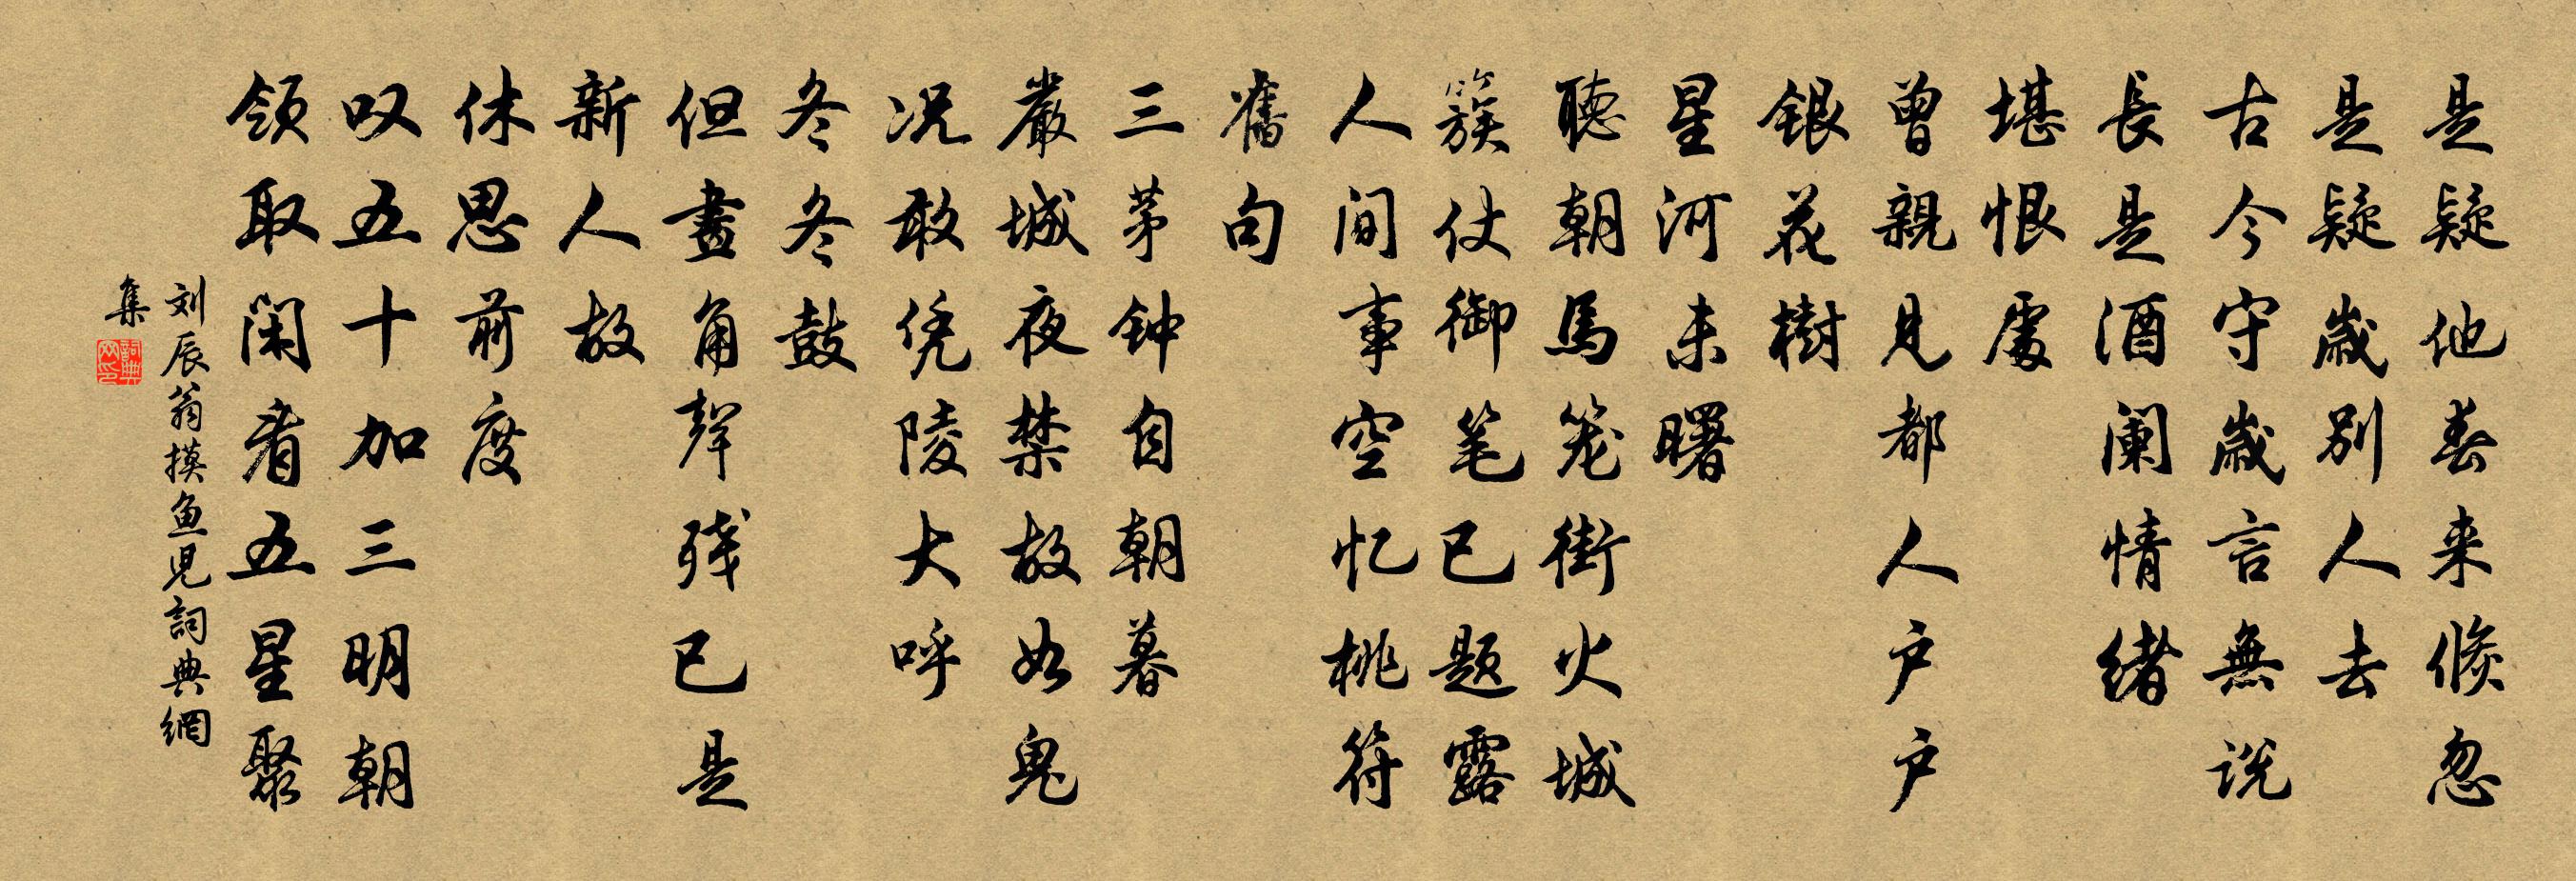 是疑他春来倏忽
是疑歲別人去
古今守歲言無说
長是酒阑情绪
堪恨處
曾親見都人户户
银花樹
星河未曙
聽朝馬笼街火城
簇仗御笔已题露
人间事空忆桃符
舊句
三茅钟自朝暮
嚴城夜禁故如鬼
况敢凭陵大呼
冬冬鼓
但畫角聲残已是
新人故
休思前度
叹五十加三明朝
领取闲看五星聚
刘辰翁摸鱼児詞典網
集
詞典网印